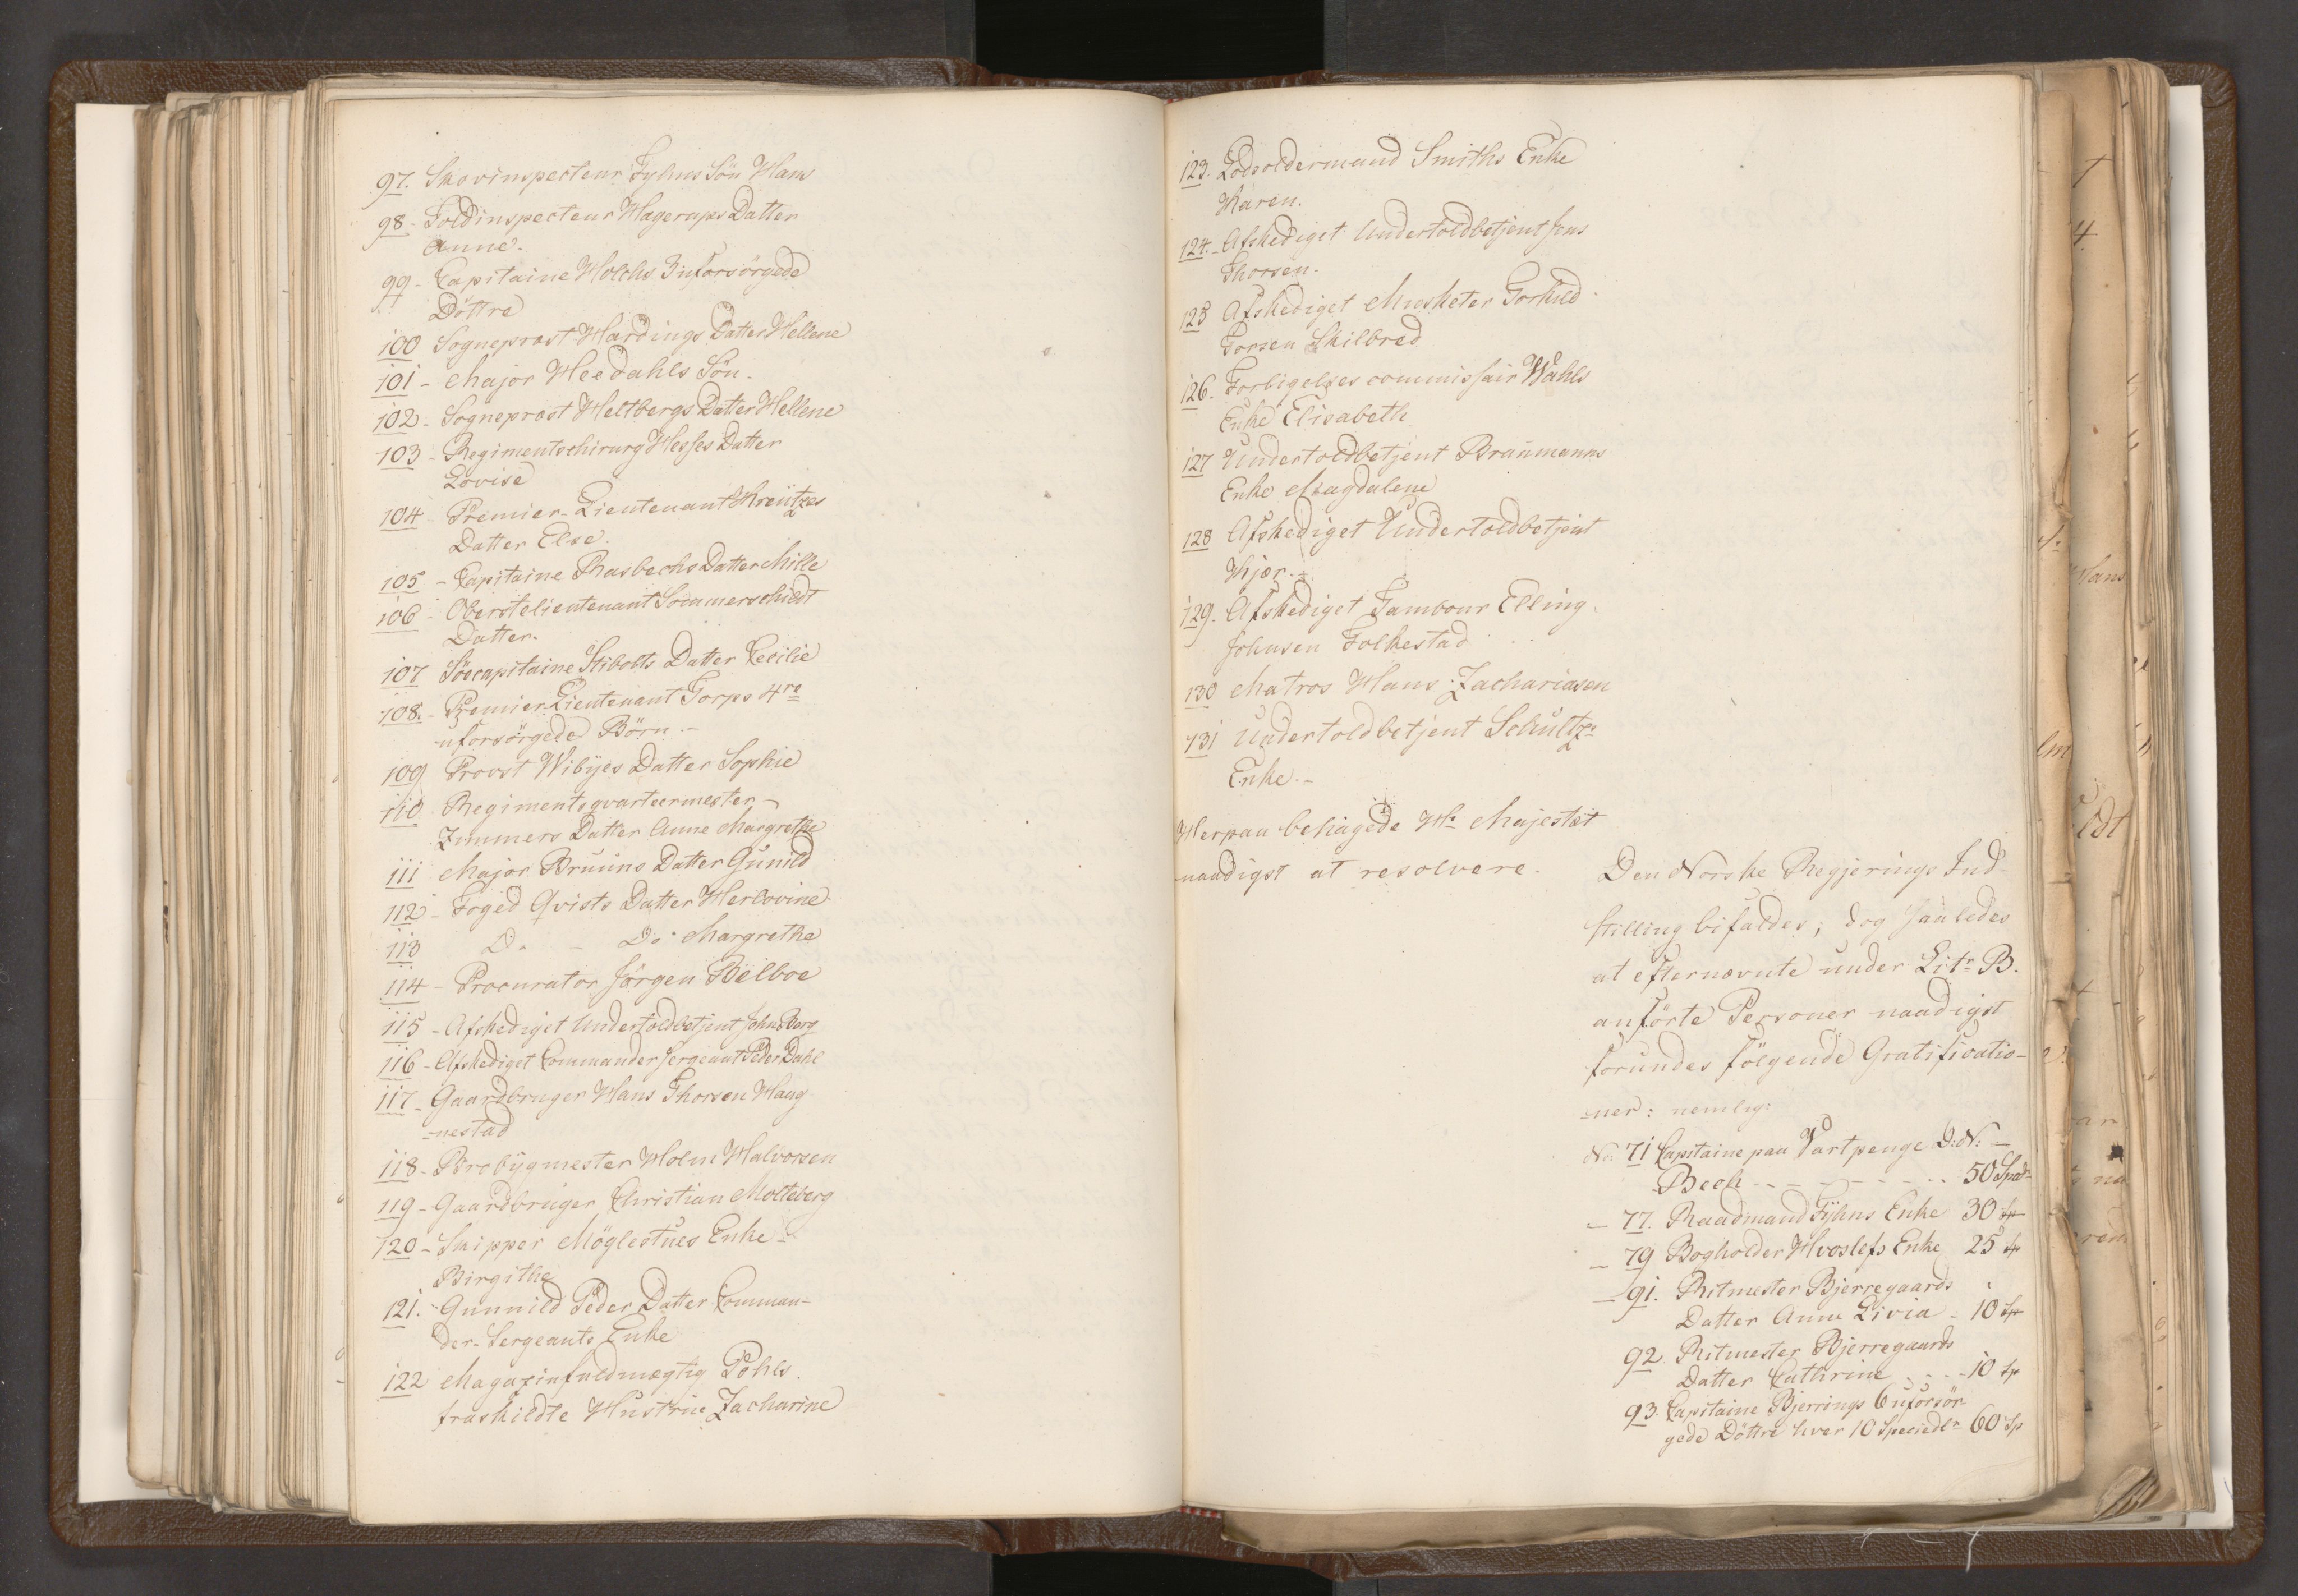 97. Skovinspecteur Fyhns Sön Hans
98 - Toldinspecteur Hagerups Datter
Anne.
99 - Capitaine Holchs 3 uforsörgede
Döttre
100 Sognepræst Hardings Datter Hellene
101 - Major Heedahls Sön.
102 - Sognepræst Heltbergs Datter Hellene
103 - Regimentschirurg Hesses Datter
Lovise
104 Premier-Lieutenant Kreutzes
Datter Else.
105 - Capitaine Rasbechs Datter Mille
106 - Oberstelieutenant Sommerschildt
Datter.
107 Söecapitaine Stibolts Datter Cecilie
108. - Premier-Lieutenant Torps 4re
uforsörgede Börn -
109 Provst Wibÿes Datter Sophie
110 Regimentsqvarteermester -
Zimmers Datter Anne Margrethe
111 Major Bruuns Datter Gunild
112 - Foged Qvists Datter Herlovine
113 Do - Do Margrethe
114 - Procurator Jörgen Bëlboe
115 - Afskediget Undertoldbetjent Johns Berg
116 - Afskediget Commandersergeant Peder Dahl
117 - Gaardbruger Hans Thorsen Haug
-nestad
118 - Brobygmester Holm Halvorsen
119 - Gaardbruger Christian Molteberg
120 - Skipper Möglestues Enke
Birgithe
121. - Gunnild Peder Datter Comman-
der-Sergeants Enke
122 Magazinfuldmægtig Pohls
fraskildte Hustrue Zacharine
123. Lodsoldermand Smiths Enke
Karen.
124. - Afskediget Undertoldbetjent Jens
Thorsen.
125 Afskediget Musketer Torkild
Torsen Skilbred
126. Forligelses commissair Wahls
Enke Elisabeth
127 Undertoldbetjent Braumanns
Enke Magdalene
128 Afskediget Undertoldbetjent
Kjær. -
129. Afskediget Tambour Elling
Johnsen Folkestad
130 Matros Hans Zachariasen
131 Undertoldbetjent Schultz's
Enke. -
Herpaa behagede Hs Majestæt
naadigst at resolvere.
Den Norske Regjerings Ind-
stilling bifaldes; dog saaledes
at efternævnte under Litr B.
anförte Personer naadigst
forundes fölgende Gratificatio-
-ner: nemlig:
No 71 Capitaine paa Vartpenge D: N: -
Bech - - - - - - - 50 Spd
- 77. Raadmand Fÿhns Enke 30 Sp
- 79 Bogholder Hvoslefs Enke 25 Sp
- 91. Ritmester Bjerregaards
Datter Anne Livia - 10 Sp
92. Ritmester Bjerregaards
Datter Cathrine - - - 10 Sp
93. Capitaine Bjerrings 6 uforsör
gede Döttre hver 10 Speciedlr 60 Sp